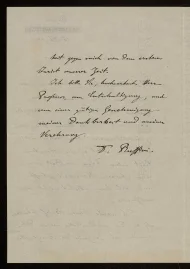 mit gegen mich von dem ersten
unserer Zeit.
Ich bitte Sie, hochverehrter Herr
Professor um Entschuldigung, und
um eine gütige Genehmigung
meiner Dankbarkeit und meiner
Verehrung